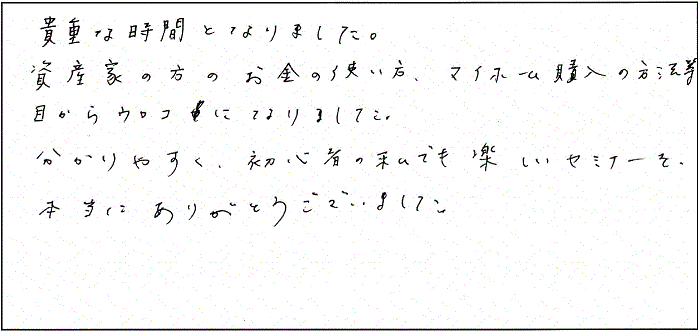 貴重な時間となりました。
資産家の方のお金の使い方、マイホーム購入の方法等
目からウロコになりました。
分かりやすく、初心者の私でも楽しいセミナーを、
本当にありがとうございました。